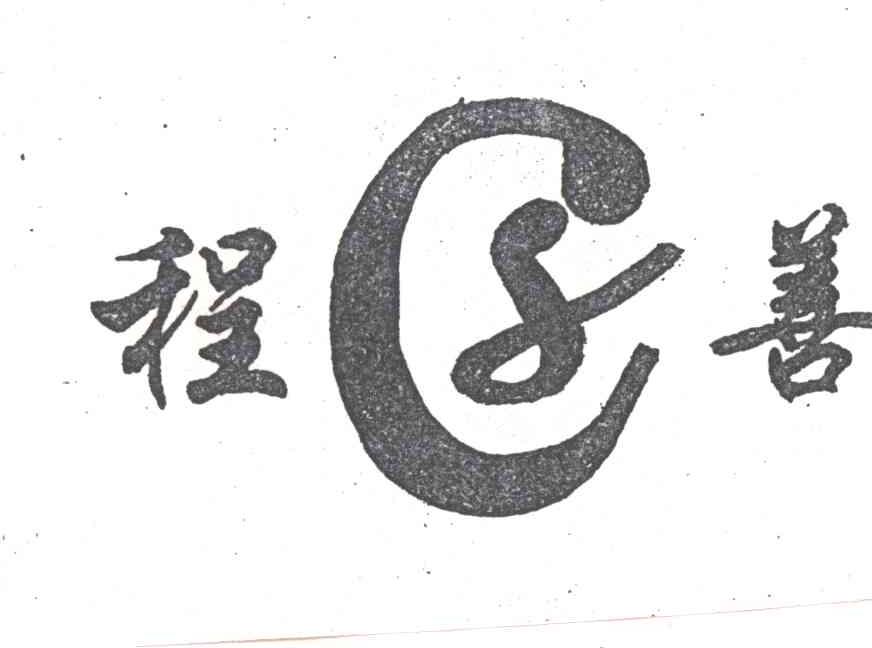 程 CS 善